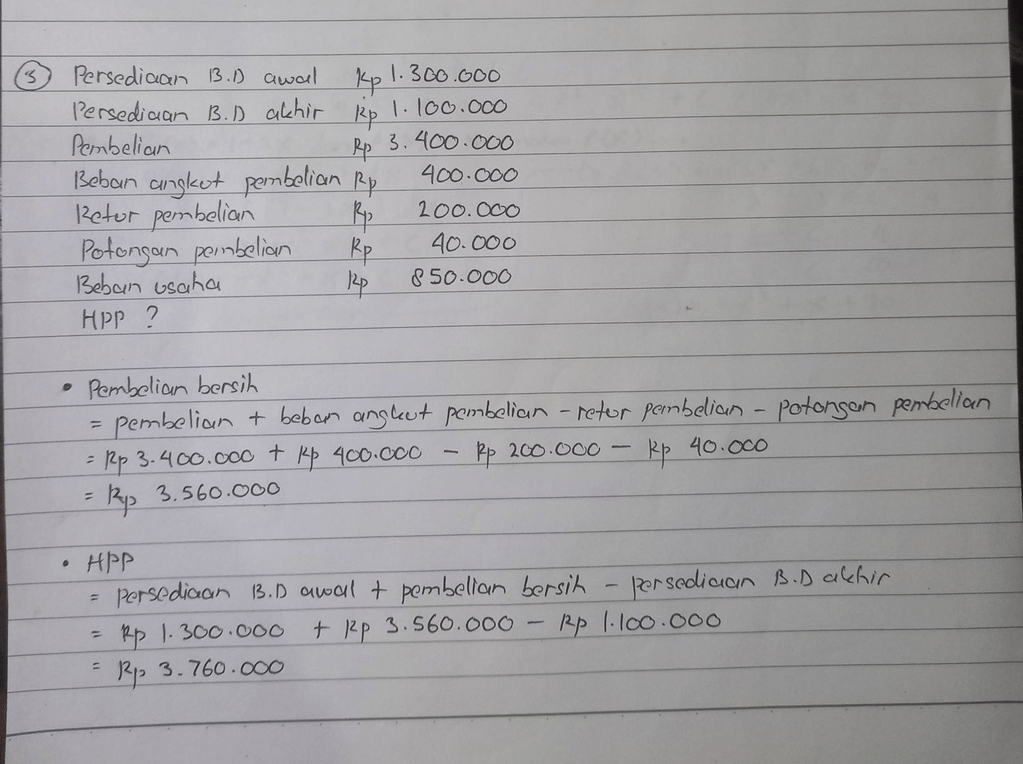 3 Persediaan B.D awal Rp 1.300.000
Persediaan B.D akhir Rp 1.100.000
Pembelian Rp 3.400.000
Beban angkut pembelian Rp 400.000
Retur pembelian Rp 200.000
Potongan pembelian Rp 40.000
Beban usaha Rp 850.000
HPP ?
• Pembelian bersih
= pembelian + beban angkut pembelian - retur pembelian - potongan pembelian
= Rp 3.400.000 + Rp 400.000 - Rp 200.000 - Rp 40.000
= Rp 3.560.000
• HPP
= persediaan B.D awal + pembelian bersih - persediaan B.D akhir
= Rp 1.300.000 + Rp 3.560.000 - Rp 1.100.000
= Rp 3.760.000